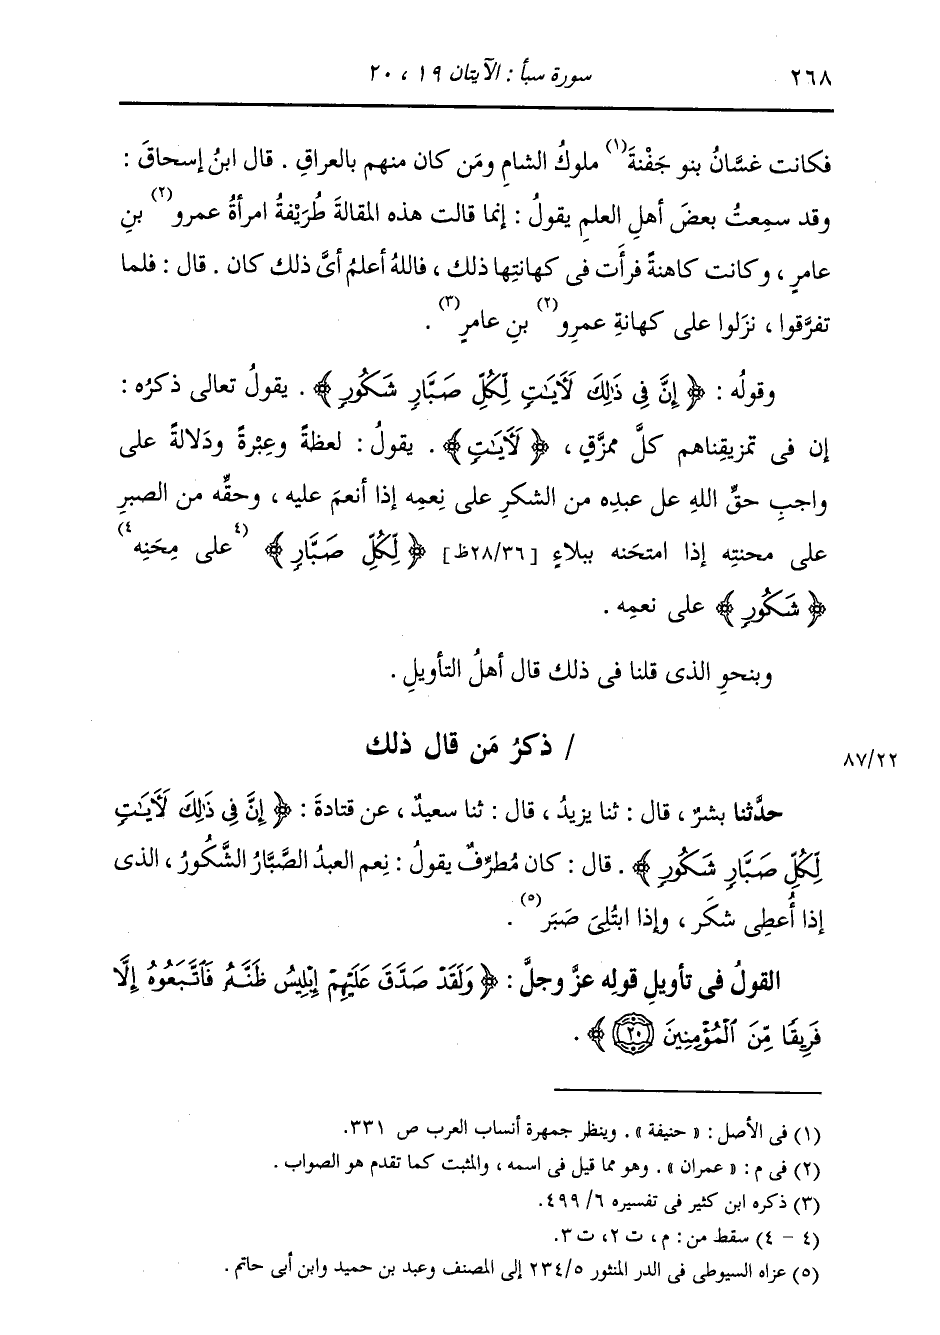 ٢٦٨ سورة سبأ : الآيتان ١٩ ، ٢٠
فكانت غسَّانُ بنو جَفْنةَ(١) ملوكُ الشامِ ومَن كان منهم بالعراقِ . قال ابنُ إسحاقَ :
وقد سمِعتُ بعضَ أهلِ العلمِ يقولُ : إنما قالت هذه المقالةَ طُرَيْفةُ امرأةُ عمرِو(٢) بنِ
عامرٍ ، وكانت كاهنةً فرأَت فى كهانتِها ذلك ، فاللهُ أعلمُ أىَّ ذلك كان . قال : فلما
تفرَّقوا ، نزَلوا على كهانةِ عمرِو(٢) بنِ عامرٍ(٣) .
وقولُه : ﴿ إِنَّ فِى ذَٰلِكَ لَآيَـٰتٍ لِّكُلِّ صَبَّارٍ شَكُورٍ ﴾ . يقولُ تعالى ذكرُه :
إن فى تمزيقِناهم كلَّ ممزَّقٍ ، ﴿ لَآيَـٰتٍ ﴾ . يقولُ : لعظةً وعِبْرةً ودَلالةً على
واجبِ حقِّ اللهِ عل عبدِه من الشكرِ على نِعمِه إذا أنعمَ عليه ، وحقِّه من الصبرِ
على محنتِه إذا امتحَنه ببلاءٍ [٢٨/٣٦ظ] ﴿ لِّكُلِّ صَبَّارٍ ﴾ (٤على مِحَنِه٤)
﴿ شَكُورٍ ﴾ على نعمِه .
وبنحوِ الذى قلنا فى ذلك قال أهلُ التأويلِ .
/ ذكرُ مَن قال ذلك
٨٧/٢٢
حدَّثنا بشرٌ ، قال : ثنا يزيدُ ، قال : ثنا سعيدٌ ، عن قتادةَ : ﴿ إِنَّ فِى ذَٰلِكَ لَآيَـٰتٍ
لِّكُلِّ صَبَّارٍ شَكُورٍ ﴾ . قال : كان مُطرِّفٌ يقولُ : نِعم العبدُ الصَّبَّارُ الشَّكُورُ ، الذى
إذا أُعطِى شكَر ، وإذا ابتُلِىَ صَبَر(٥) .
القولُ فى تأويلِ قولِه عزَّ وجلَّ : ﴿ وَلَقَدْ صَدَّقَ عَلَيْهِمْ إِبْلِيسُ ظَنَّهُۥ فَٱتَّبَعُوهُ إِلَّا
فَرِيقًا مِّنَ ٱلْمُؤْمِنِينَ ٢٠ ﴾ .
(١) فى الأصل : « حنيفة » . وينظر جمهرة أنساب العرب ص ٣٣١.
(٢) فى م : « عمران » . وهو مما قيل فى اسمه ، والمثبت كما تقدم هو الصواب .
(٣) ذكره ابن كثير فى تفسيره ٦/ ٤٩٩.
(٤ - ٤) سقط من : م ، ت ٢، ت ٣.
(٥) عزاه السيوطى فى الدر المنثور ٢٣٤/٥ إلى المصنف وعبد بن حميد وابن أبى حاتم .